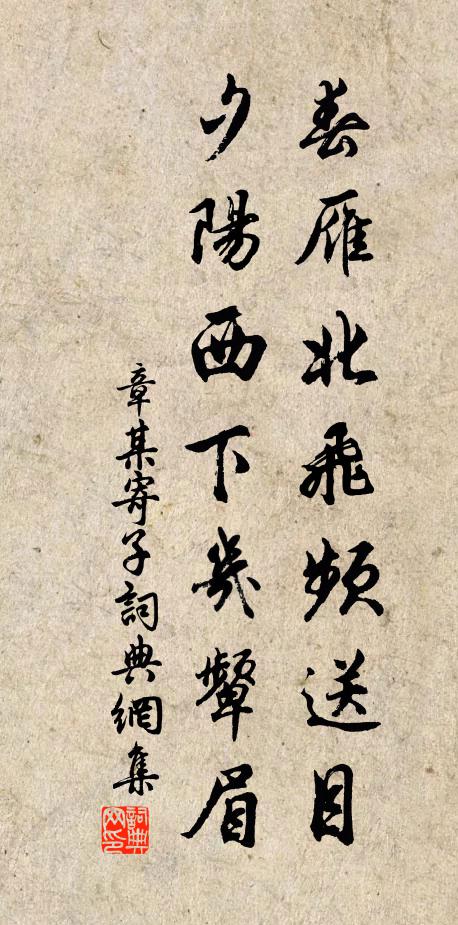 春雁北飛頻送目
夕陽西下幾顰眉
章某寄子詞典網集
詞典
网印